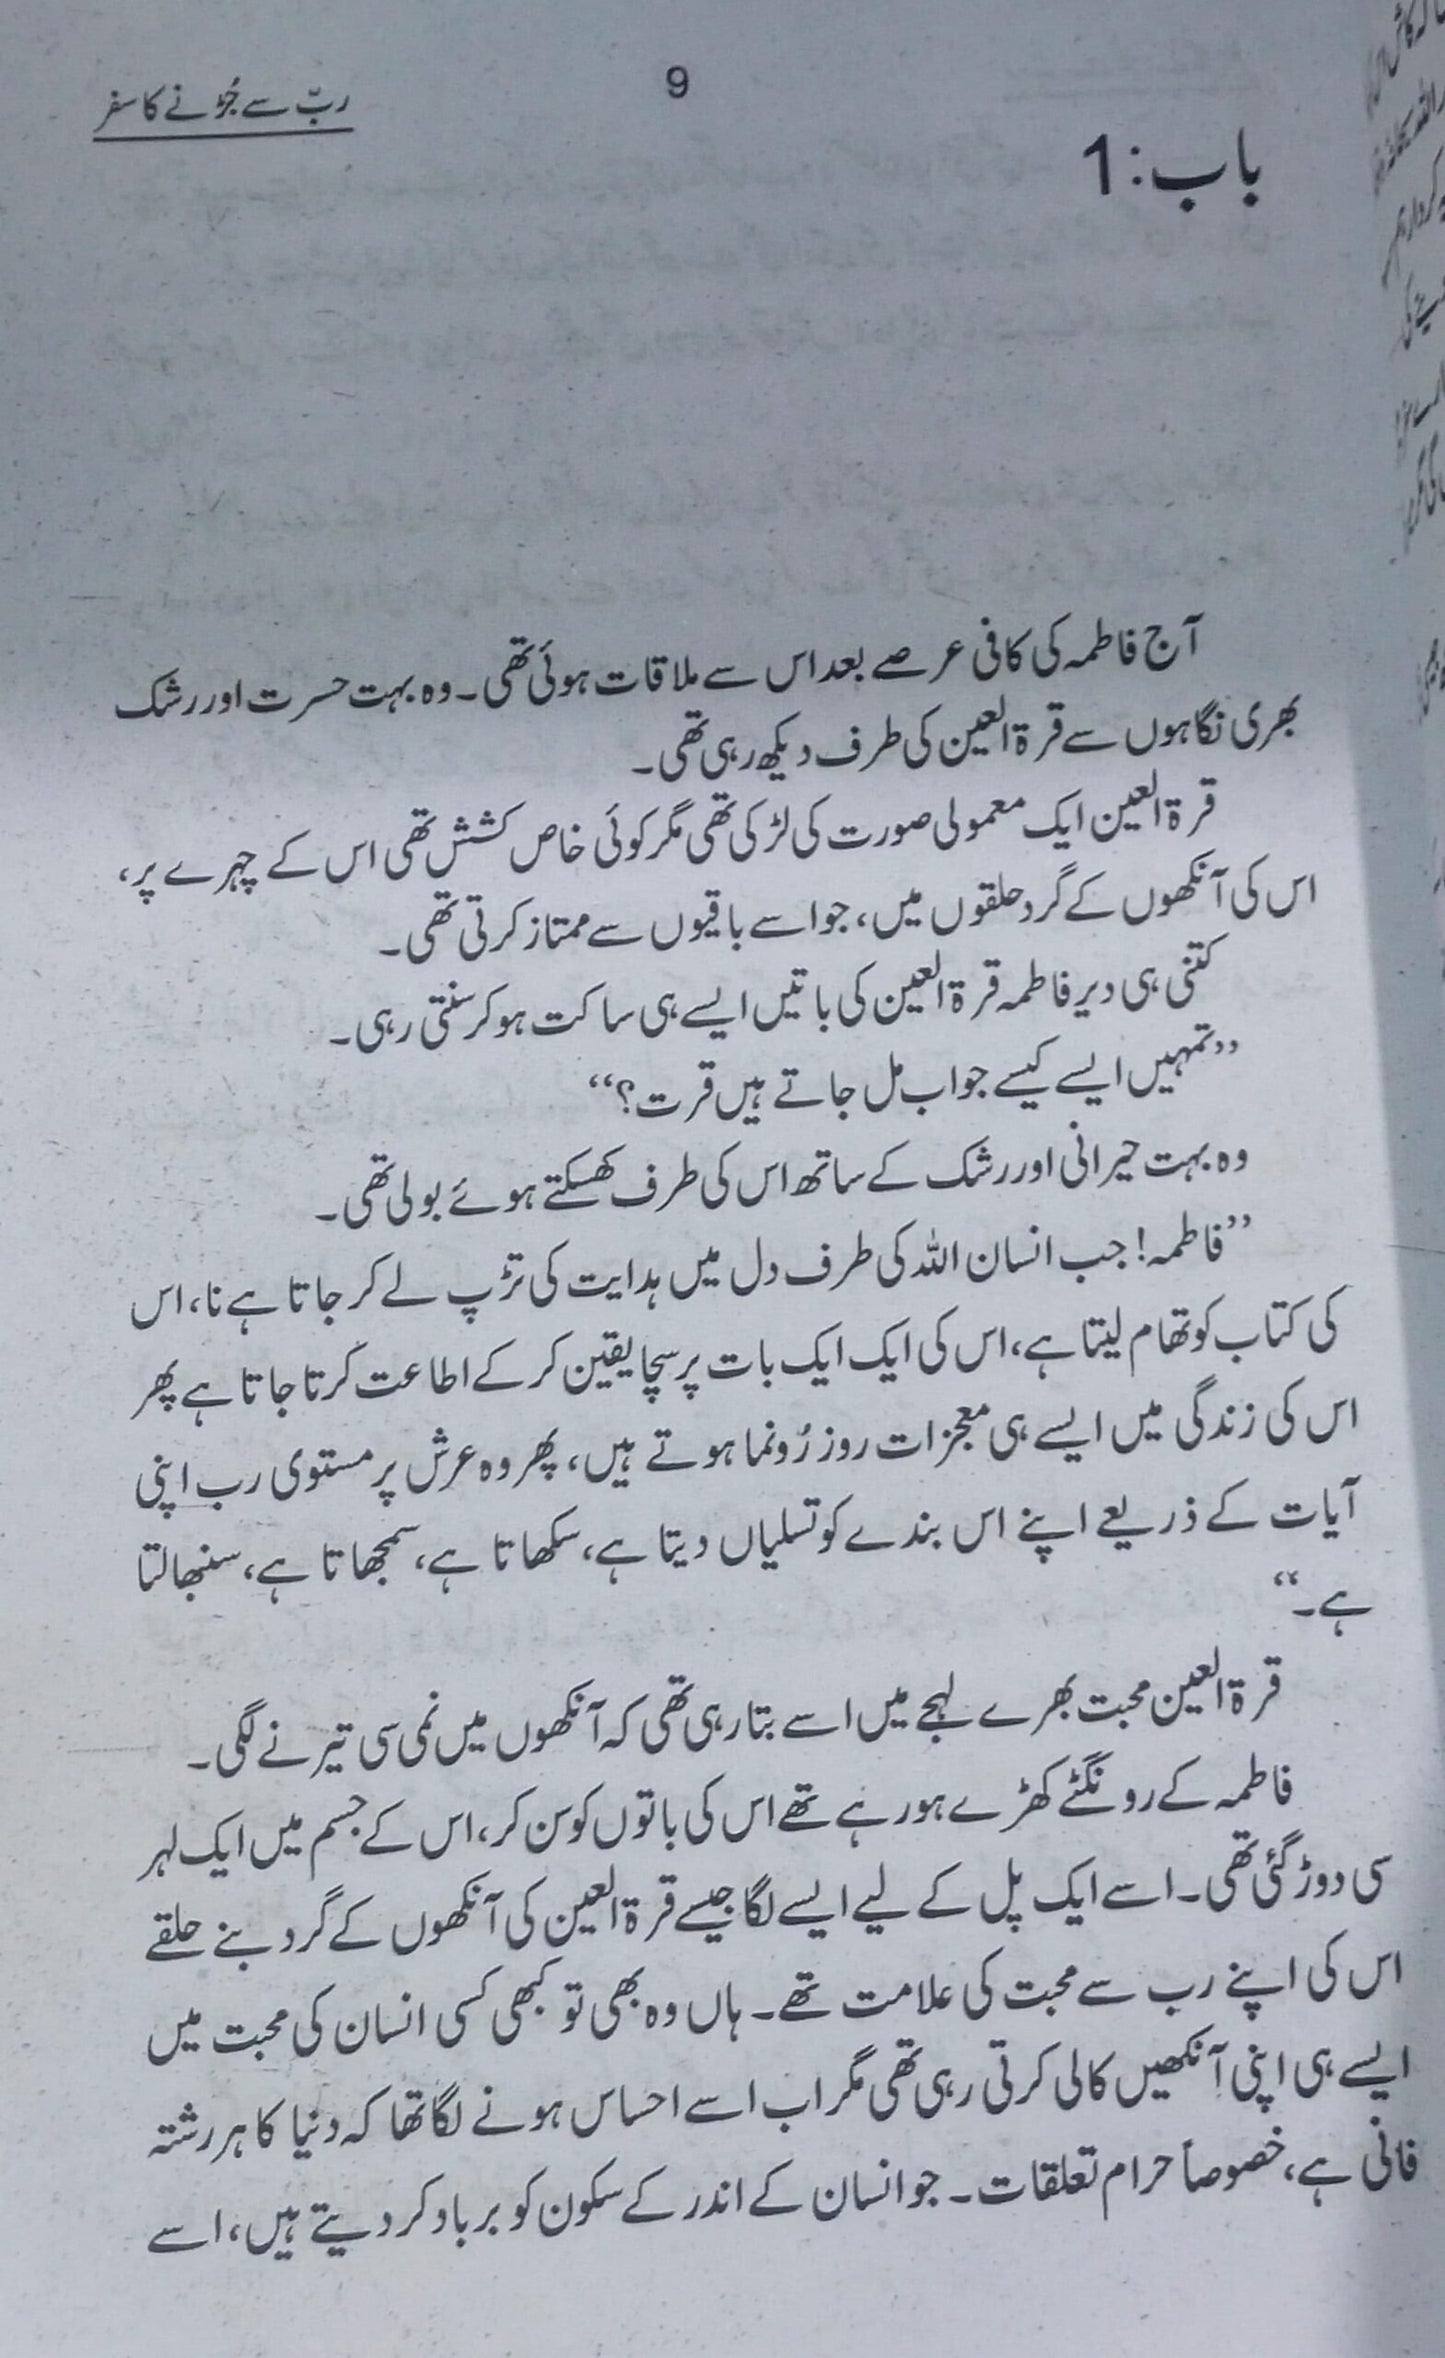 ربّ سے جُڑنے کا سفر
9
باب: 1
آج فاطمہ کی کافی عرصے بعد اس سے ملاقات ہوئی تھی۔ وہ بہت حسرت اور رشک
بھری نگاہوں سے قرۃ العین کی طرف دیکھ رہی تھی۔
قرۃ العین ایک معمولی صورت کی لڑکی تھی مگر کوئی خاص کشش تھی اس کے چہرے پر،
اس کی آنکھوں کے گرد حلقوں میں، جو اسے باقیوں سے ممتاز کرتی تھی۔
کتنی ہی دیر فاطمہ قرۃ العین کی باتیں ایسے ہی ساکت ہو کر سنتی رہی۔
”تمہیں ایسے کیسے جواب مل جاتے ہیں قرت؟“
وہ بہت حیرانی اور رشک کے ساتھ اس کی طرف کھسکتے ہوئے بولی تھی۔
”فاطمہ! جب انسان اللہ کی طرف دل میں ہدایت کی تڑپ لے کر جاتا ہے نا، اس
کی کتاب کو تھام لیتا ہے، اس کی ایک ایک بات پر سچا یقین کر کے اطاعت کرتا جاتا ہے پھر
اس کی زندگی میں ایسے ہی معجزات روز رُونما ہوتے ہیں، پھر وہ عرش پر مستوی رب اپنی
آیات کے ذریعے اپنے اس بندے کو تسلیاں دیتا ہے، سکھاتا ہے، سمجھاتا ہے، سنبھالتا
ہے۔“
قرۃ العین محبت بھرے لہجے میں اسے بتا رہی تھی کہ آنکھوں میں نمی سی تیرنے لگی۔
فاطمہ کے رونگٹے کھڑے ہو رہے تھے اس کی باتوں کو سن کر، اس کے جسم میں ایک لہر
سی دوڑ گئی تھی۔ اسے ایک پل کے لیے ایسے لگا جیسے قرۃ العین کی آنکھوں کے گرد بنے حلقے
اس کی اپنے رب سے محبت کی علامت تھے۔ ہاں وہ بھی تو کبھی کسی انسان کی محبت میں
ایسے ہی اپنی آنکھیں کالی کرتی رہی تھی مگر اب اسے احساس ہونے لگا تھا کہ دنیا کا ہر رشتہ
فانی ہے، خصوصاً حرام تعلقات۔ جو انسان کے اندر کے سکون کو برباد کر دیتے ہیں، اسے